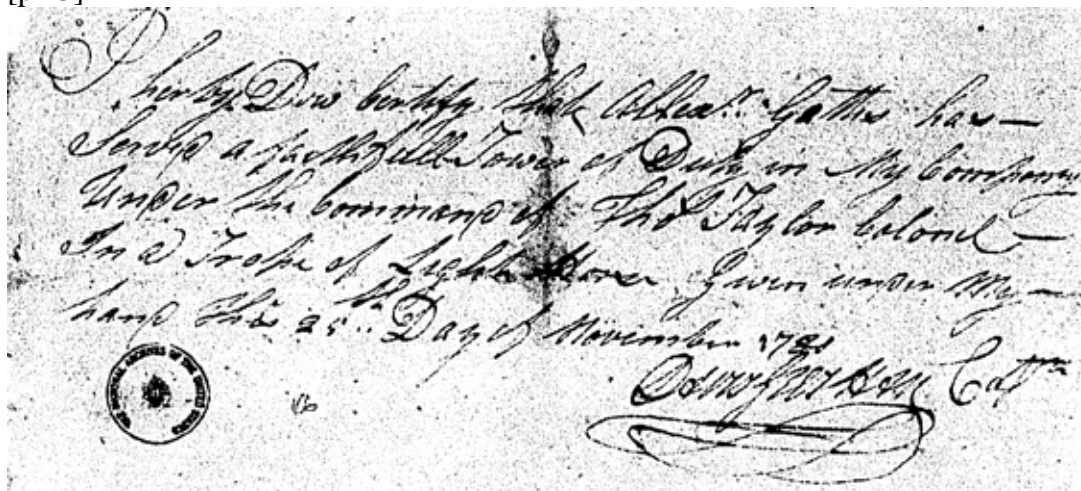 I hereby Dow Certify that Allexr. Gattis has
Served a faithfull Tower of Duty in My Company
Under the Command of Thos Taylor Colonel
In a Trope of Light Horse Given under My
hand this 25th Day of November 1781
Capt
THE NATIONAL ARCHIVES OF THE UNITED STATES